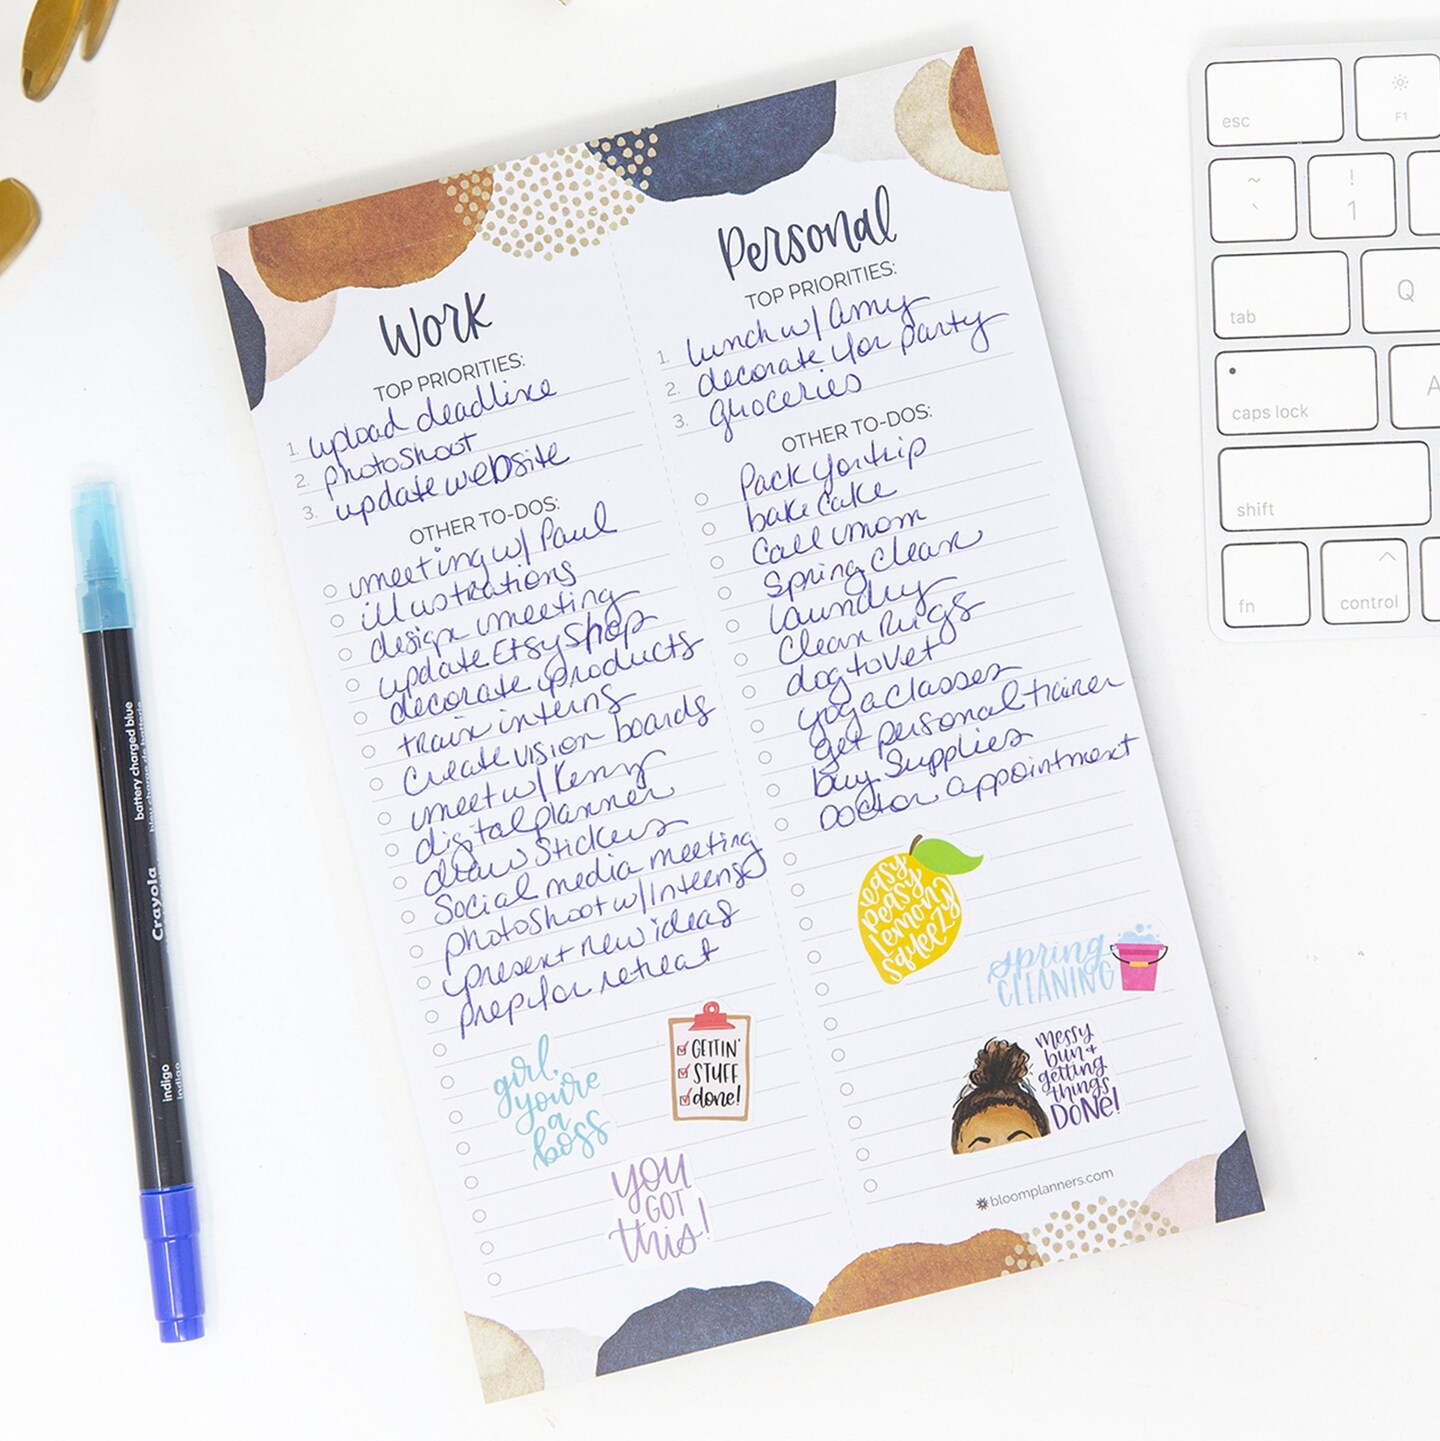 Work
TOP PRIORITIES:
1. upload deadline
2. photoshoot
3. update website
OTHER TO-DOS:
meeting w/ Paul
illustrations
design meeting
update Etsy Shop
decorate products
train interns
Create vision boards
meet w/ Kenny
digital planner
draw Stickers
Social media meeting
photoshoot w/ Interns
present new ideas
prep for retreat
girl,
you're
a
boss
GETTIN'
STUFF
done!
YOU
GOT
this!
Personal
TOP PRIORITIES:
1. lunch w/ Amy
2. decorate for party
3. groceries
OTHER TO-DOS:
Pack for trip
bake cake
Call mom
Spring Clean
laundry
Clean Rugs
dog to vet
yoga classes
get personal trainer
buy Supplies
Doctor appointment
easy
peasy
lemon
squeezy
spring
CLEANING
messy
bun +
getting
things
DONE!
bloomplanners.com
battery charged blue
Crayola
indigo
indigo
esc
F1
~
`
!
1
tab
Q
caps lock
A
shift
fn
control